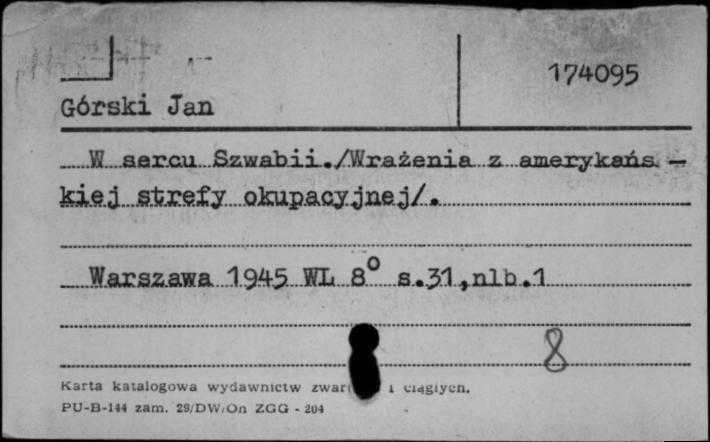 174095
Górski Jan
W sercu Szwabii./Wrażenia z amerykańs.—
kiej strefy okupacyjnej/.
Warszawa 1945 WL 8° s.31,nlb.1
8
Karta katalogowa wydawnictw i ciągłych.
PU-B-144 zam. 29/DW/On ZGG - 204